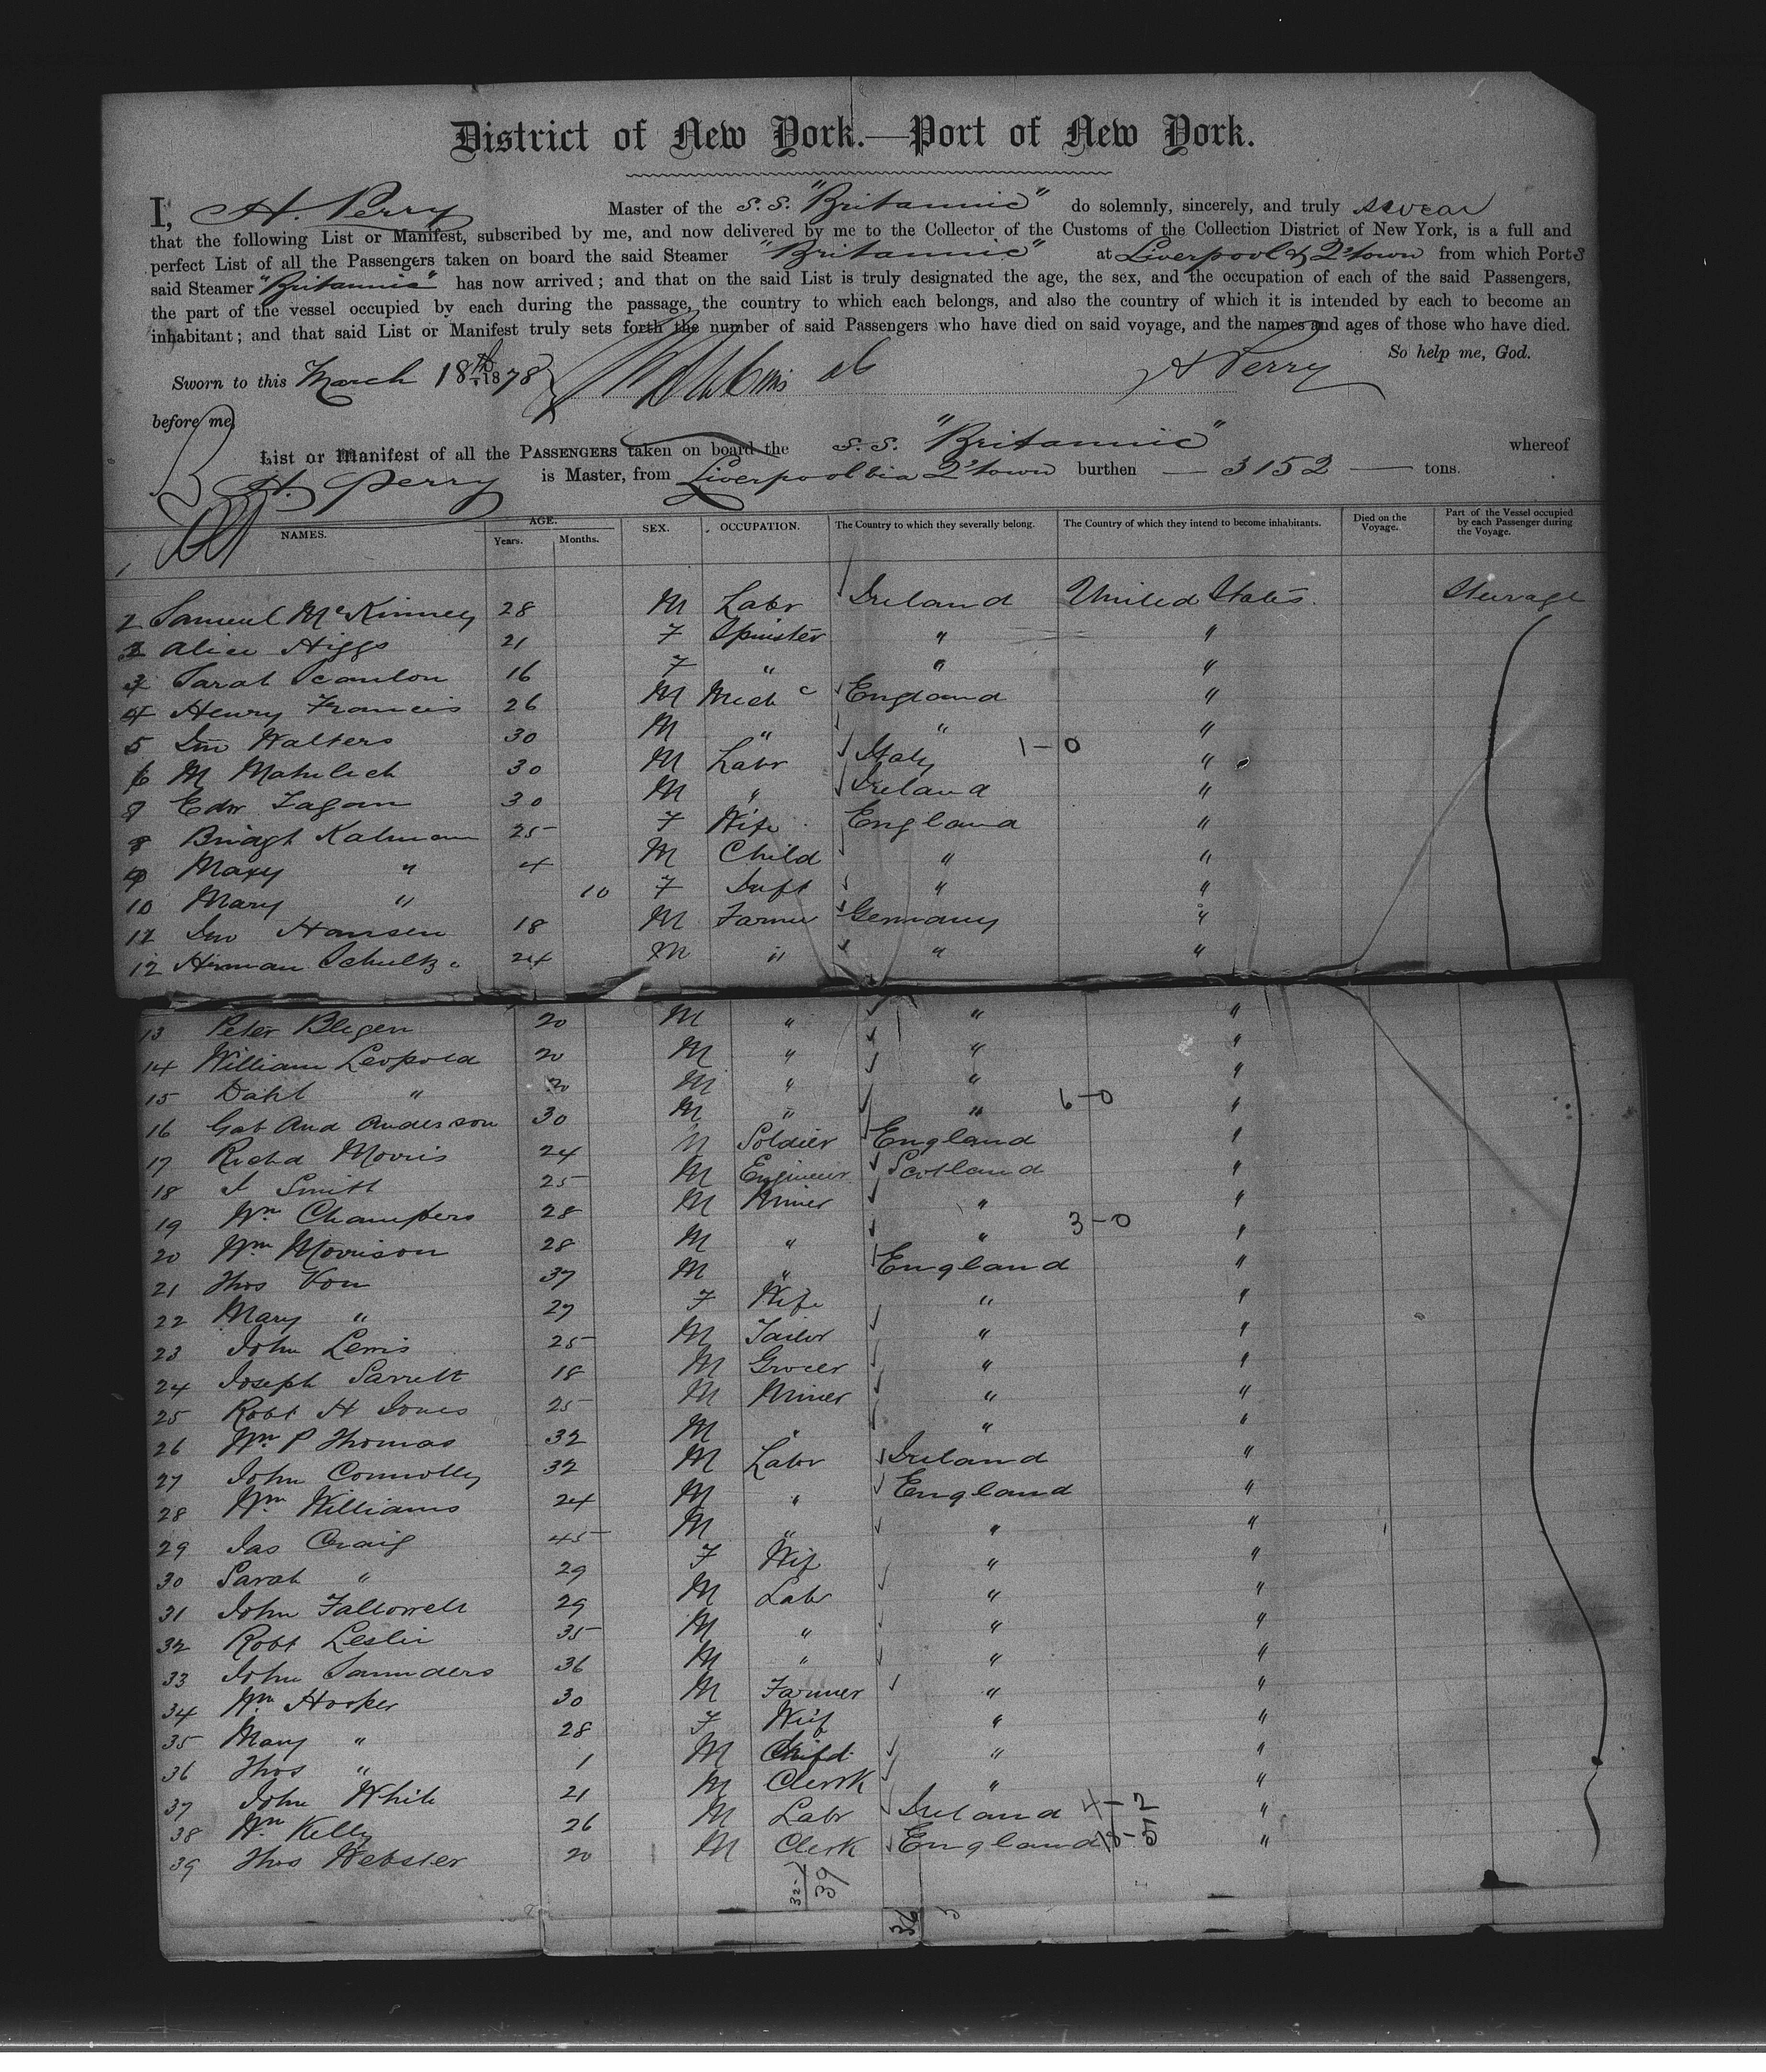 District of New York.—Port of New York.
I, H. Perry Master of the S.S. "Britannic" do solemnly, sincerely, and truly swear
that the following List or Manifest, subscribed by me, and now delivered by me to the Collector of the Customs of the Collection District of New York, is a full and
perfect List of all the Passengers taken on board the said Steamer "Britannic" at Liverpool & Q'town from which Ports
said Steamer "Britannic" has now arrived; and that on the said List is truly designated the age, the sex, and the occupation of each of the said Passengers,
the part of the vessel occupied by each during the passage, the country to which each belongs, and also the country of which it is intended by each to become an
inhabitant; and that said List or Manifest truly sets forth the number of said Passengers who have died on said voyage, and the names and ages of those who have died.
So help me, God.
Sworn to this March 18th 1878 H Perry
before me,
List or Manifest of all the PASSENGERS taken on board the S.S. "Britannic" whereof
H. Perry is Master, from Liverpool via Q'town burthen — 3152 — tons.
NAMES. AGE. Years. Months. SEX. OCCUPATION. The Country to which they severally belong. The Country of which they intend to become inhabitants. Died on the Voyage. Part of the Vessel occupied by each Passenger during the Voyage.
1
2 Samuel McKinney 28 M Labr Ireland United States. Steerage
2 Alice Higgs 21 F Spinster " "
3 Sarah Scanlon 16 F " " "
4 Henry Francis 26 M Mechc England "
5 Jno Walters 30 M " " "
6 M Matulich 30 M Labr Italy 1-0 "
8 Edw Fagan 30 M " Ireland "
8 Bridgt Kalman 25 F Wife England "
9 Maxy " 4 M Child " "
10 Mary " 10 F Inft " "
11 Jno Hansen 18 M Farmer Germany "
12 Hirman Schultz 24 M " " "
13 Peter Bligen 20 M " " "
14 William Leopold 20 M " " "
15 Dahl " 20 M " " "
16 Gab And Anderson 30 M " " 6-0 "
17 Richd Morris 24 M Soldier England "
18 J Smith 25 M Engineer Scotland "
19 Wm Champers 28 M Miner " "
20 Wm Morrison 28 M " " 3-0 "
21 Thos Von 37 M " England "
22 Mary " 27 F Wife " "
23 John Lewis 25 M Tailor " "
24 Joseph Sarrett 18 M Grocer " "
25 Robt H Jones 25 M Miner " "
26 Wm P Thomas 32 M " " "
27 John Connolly 32 M Labr Ireland "
28 Wm Williams 24 M " England "
29 Jas Craig 45 M " " "
30 Sarah " 29 F Wif " "
31 John Fallowell 29 M Labr " "
32 Robt Leslie 35 M " " "
33 John Saunders 36 M " " "
34 Wm Hooper 30 M Farmer " "
35 Mary " 28 F Wif " "
36 Thos " 1 M Child " "
37 John White 21 M Clerk " "
38 Wm Kelly 26 M Labr Ireland 4-2 "
39 Thos Webster 20 M Clerk England "
32 39
36 3